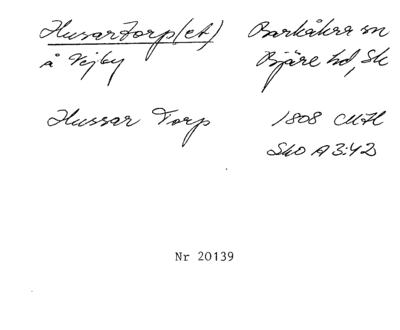 Husartorp(et) Barkåkra sn
å Vejby Bjäre hd, Sk
Hussar Torp 1808 CUH
Sko A 3:42
Nr 20139